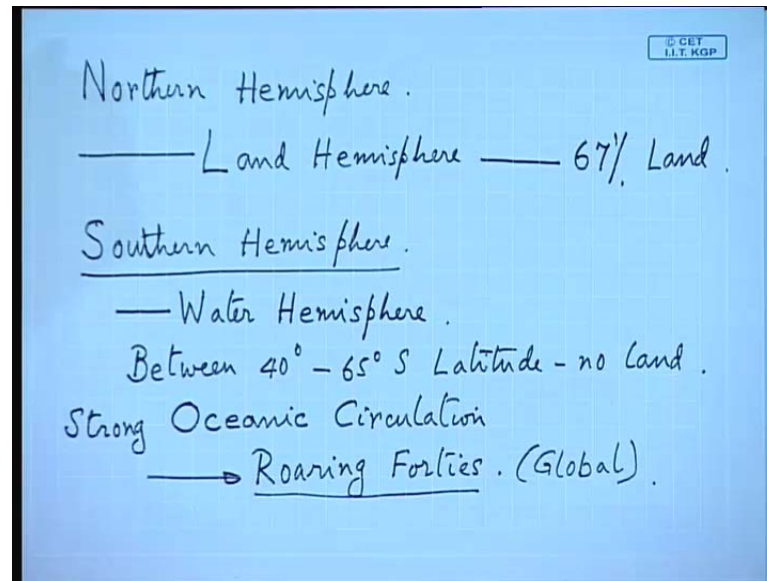 © CET
I.I.T. KGP
Northern Hemisphere.
— Land Hemisphere — 67% Land.
Southern Hemisphere.
— Water Hemisphere.
Between 40° – 65° S Latitude – no Land.
Strong Oceanic Circulation
→ Roaring Forties. (Global).